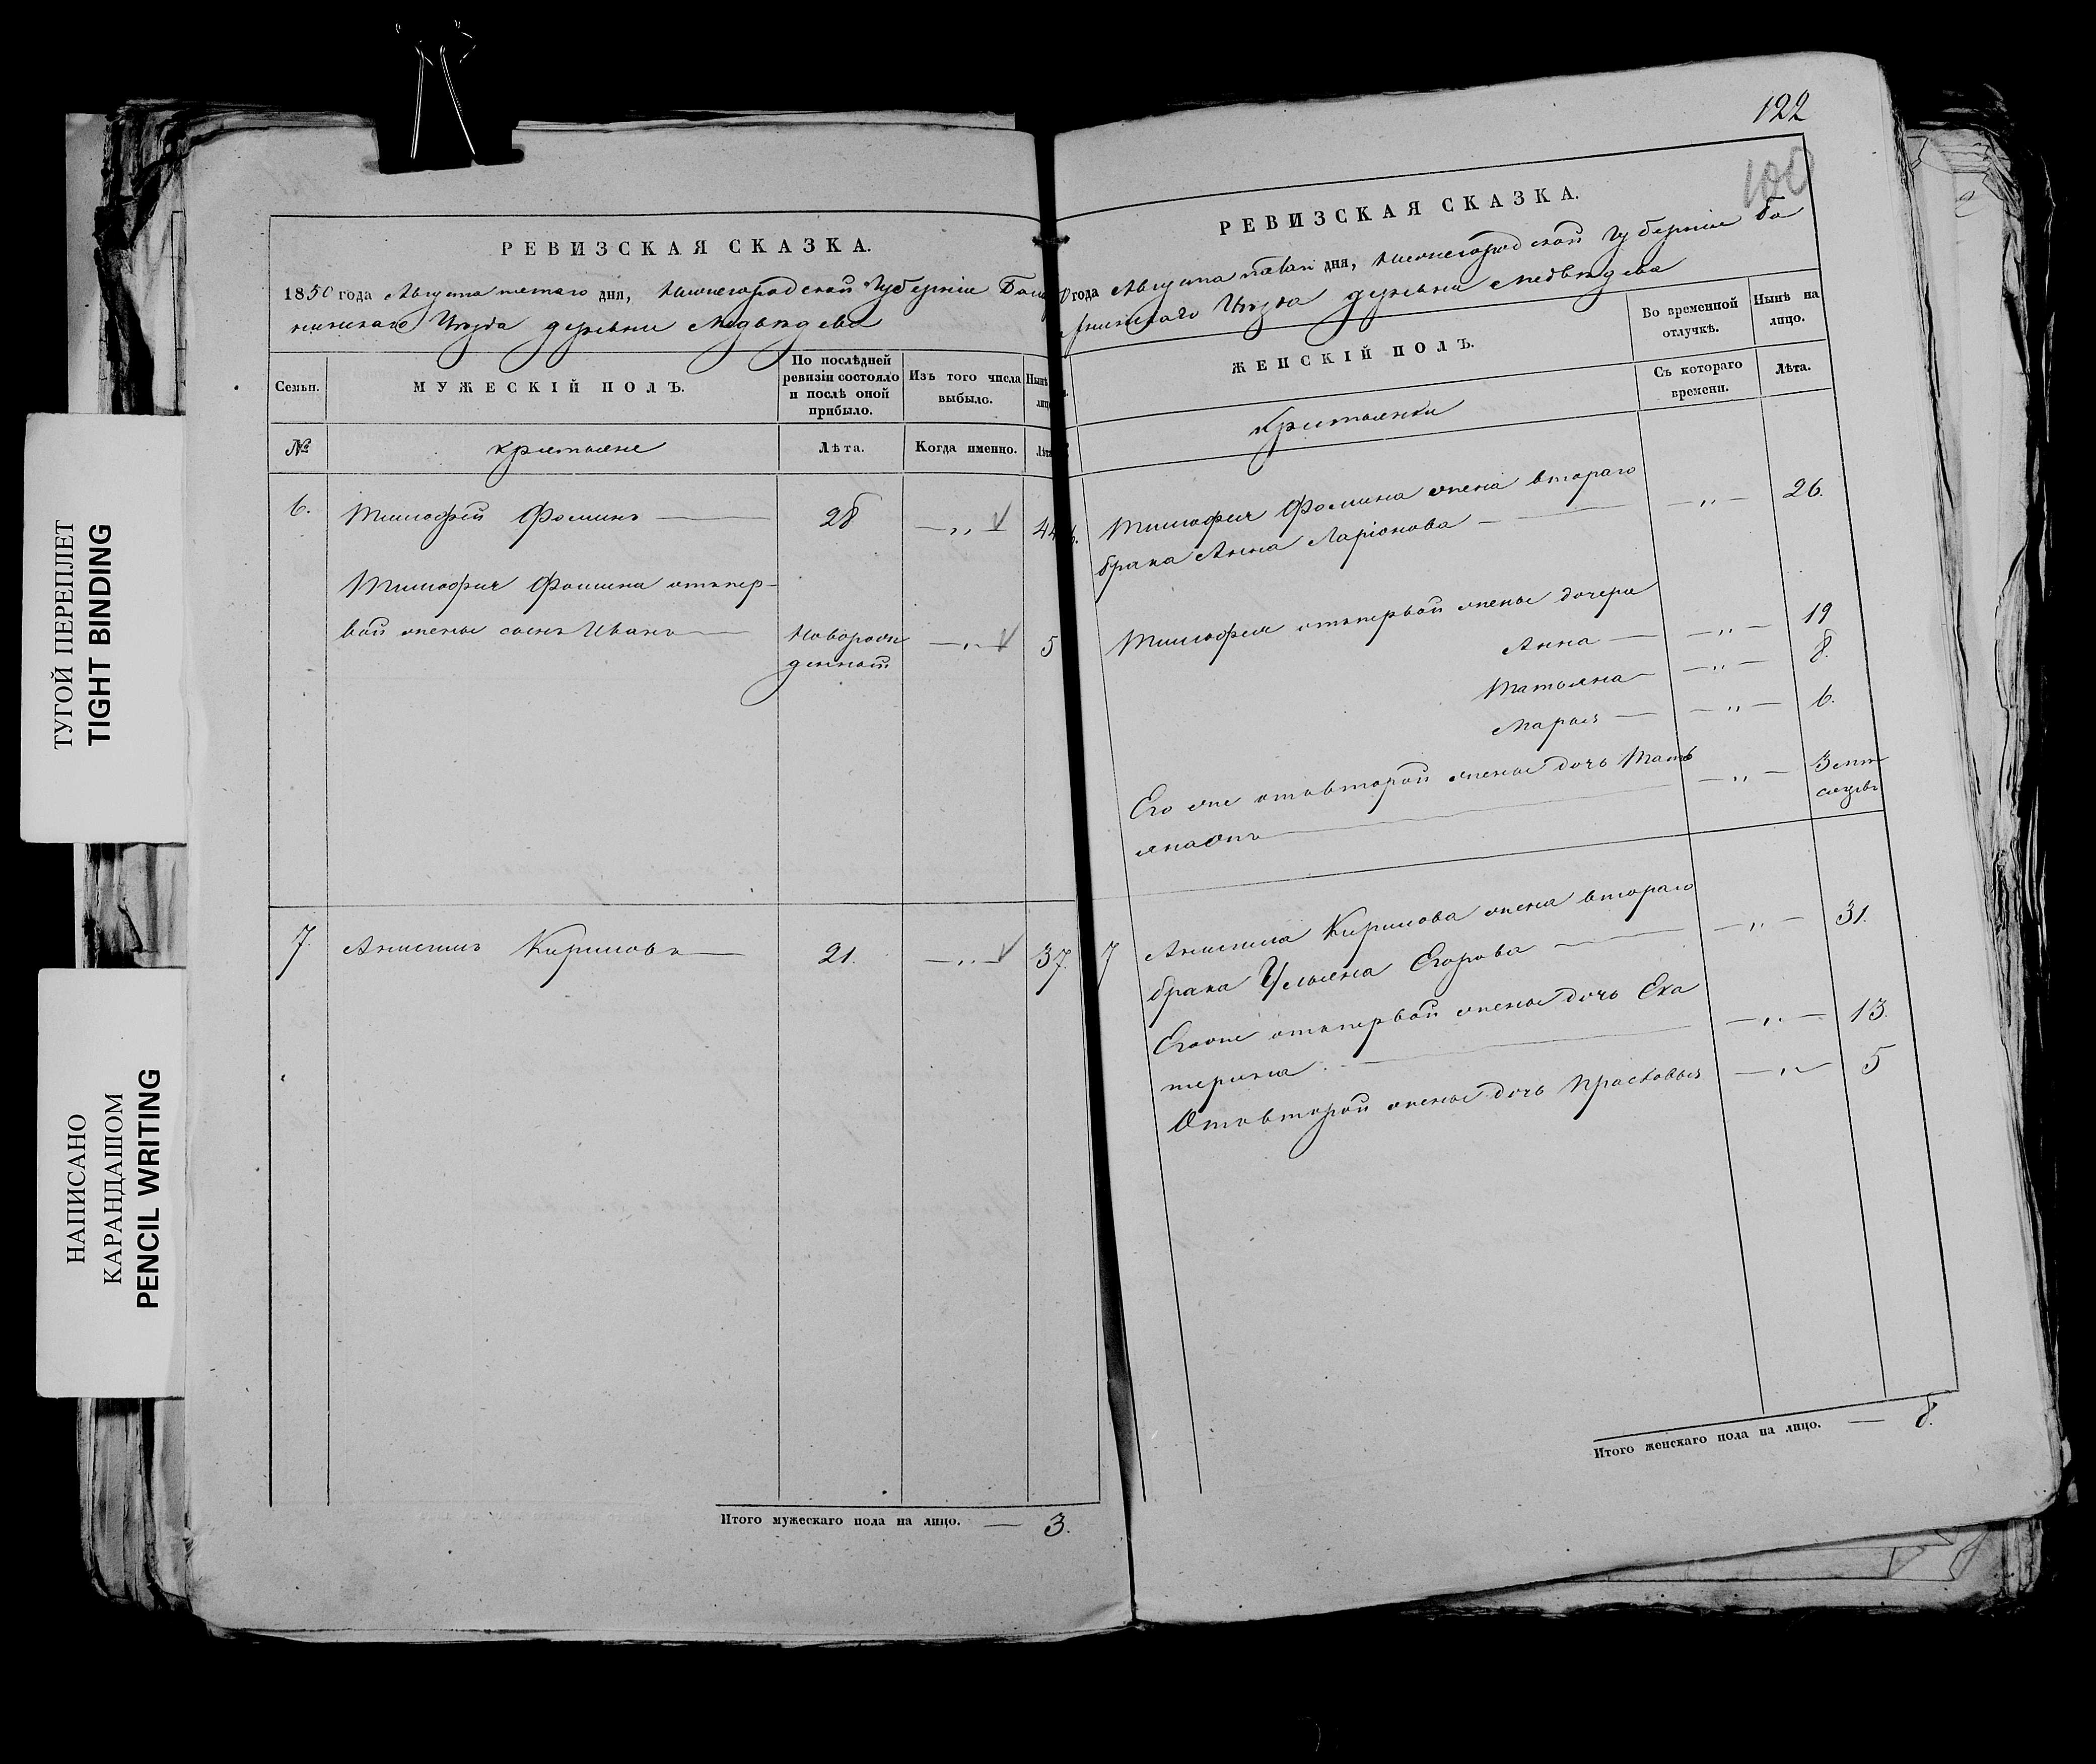 ТУГОЙ ПЕРЕПЛЕТ
TIGHT BINDING
НАПИСАНО
КАРАНДАШОМ
PENCIL WRITING
РЕВИЗСКАЯ СКАЗКА.
1850 года Августа пятаго дня, Нижегородской Губерніи
Уѣзда деревни Медвѣдева
Семьи.
МУЖЕСКІЙ ПОЛЪ.
По послѣдней
ревизіи состояло
и послѣ оной
прибыло.
Изъ того числа
выбыло.
Нынѣ
лицо
№
крестьяне
Лѣта.
Когда именно.
Лѣта
6. Тимофей Фоминъ — 28 — „ — 44
Тимофея Фомина отъ пер-
вой жены сынъ Иванъ — Новорож 5
денной
7. Анисимъ Кириловъ — 21. — „ — 37.
Итого мужескаго пола на лицо. — 3.
122
100
РЕВИЗСКАЯ СКАЗКА.
0 года Августа пятаго дня, Нижегородской Губерніи Ба
Уѣзда деревни Медвѣдева
ЖЕНСКІЙ ПОЛЪ.
Во временной
отлучкѣ.
Нынѣ на
лицо.
Съ котораго
времени.
Лѣта.
Крестьянки
6. Тимофея Фомина жена втораго
брака Анна Ларіонова — — „ — 26.
Тимофея отъ первой жены дочери
Анна — — „ — 19
Татьяна — — „ — 8.
Марья — — „ — 6.
Его же отъ второй жены дочь Тать
яна — „ — 3
7 Анисима Кирилова жена втораго
брака Ульяна Егорова — — „ — 31.
Его же отъ первой жены дочь Ека
терина — — „ — 13.
Отъ второй жены дочь Прасковья — „ — 5
Итого женскаго пола на лицо. — 8.